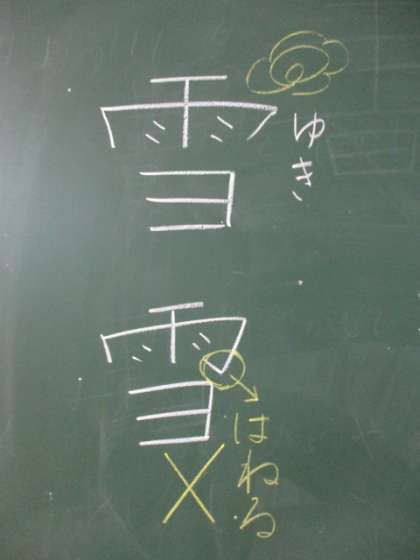 雪
ゆき
雪
はねる
X